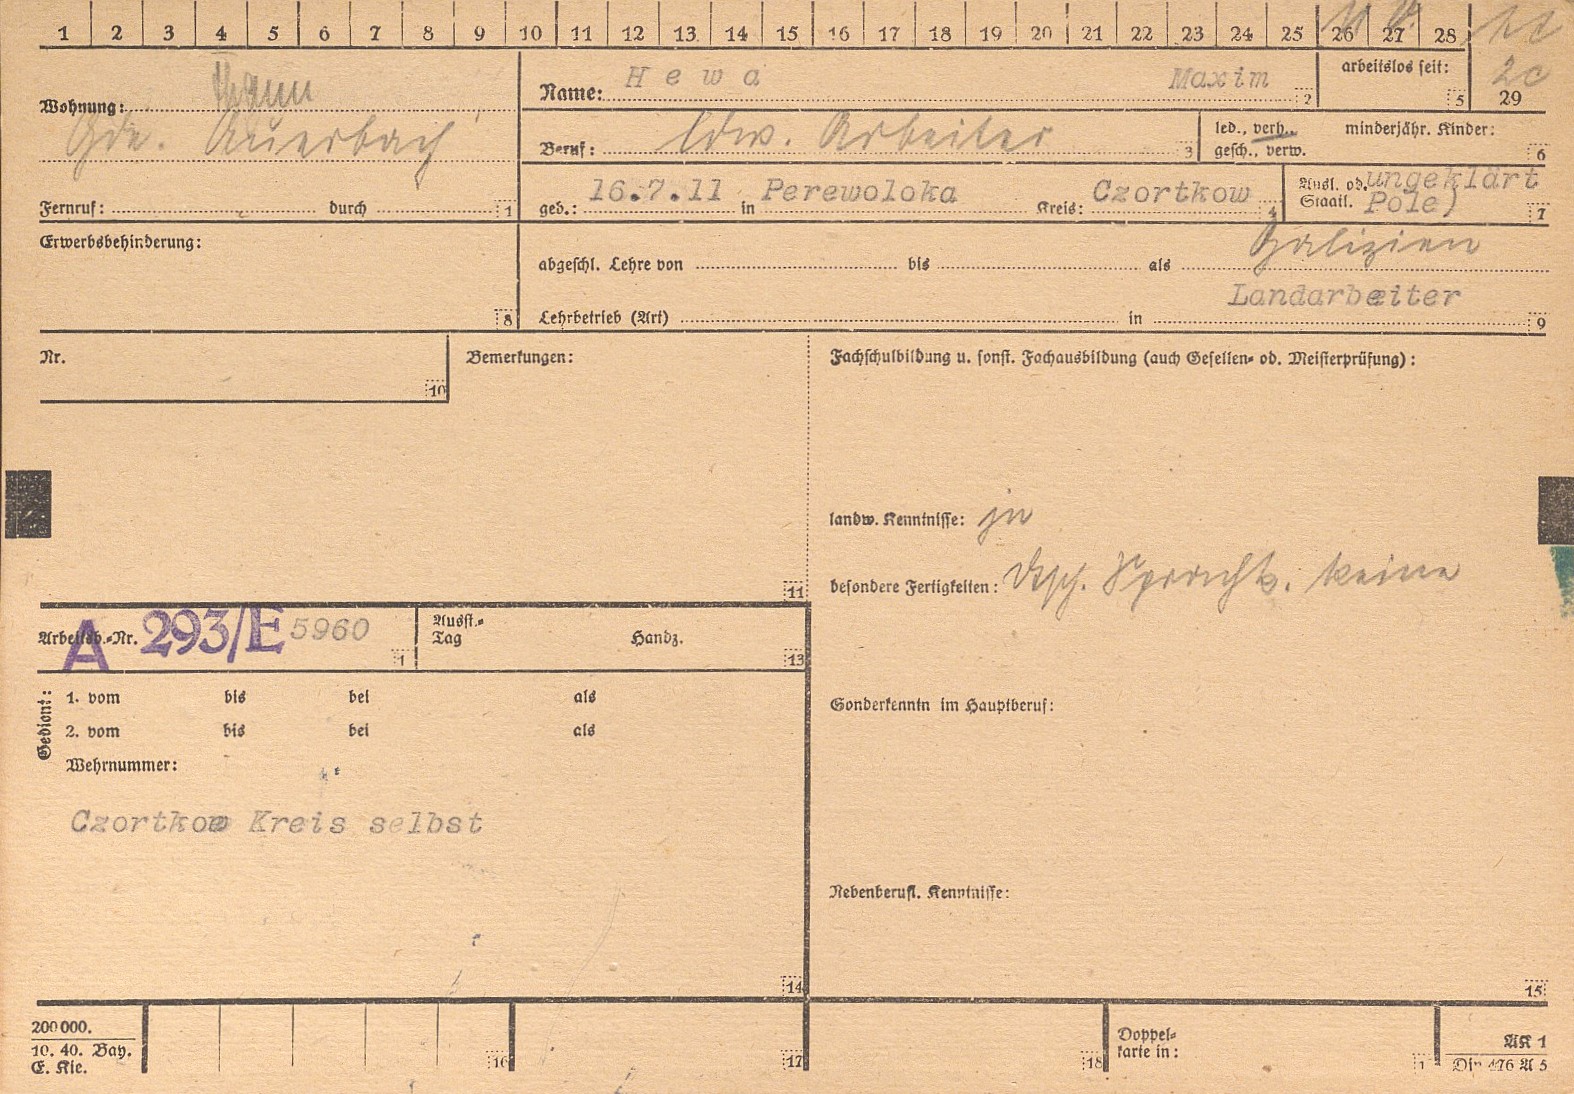 1 2 3 4 5 6 7 8 9 10 11 12 13 14 15 16 17 18 19 20 21 22 23 24 25 26 27 28
Wohnung: Thann
Gde. Auerbach
Fernruf: durch 1
Name: Hewa Maxim 2
arbeitslos seit: 5
2c
29
Beruf: ldw. Arbeiter 3
led., verh., minderjähr. Kinder:
gesch., verw. 6
geb.: 16.7.11 in Perewoloka Kreis: Czortkow 4
Ausl. od. ungeklärt
Staatl. Pole) 7
Erwerbsbehinderung: 8
Galizien
abgeschl. Lehre von bis als
Landarbeiter
Lehrbetrieb (Art) in 9
Nr. 10
Bemerkungen: 11
Fachschulbildung u. sonst. Fachausbildung (auch Gesellen- od. Meisterprüfung):
landw. Kenntnisse: ja
besondere Fertigkeiten: Dtsch. Sprachk. keine
Arbeitsb.-Nr. A 293/E 5960 1
Ausst.-
Tag Handz. 13
Gedient:
1. vom bis bei als
2. vom bis bei als
Wehrnummer:
Czortkow Kreis selbst
14
Sonderkenntn im Hauptberuf:
Nebenberufl. Kenntnisse:
15
200000.
10. 40. Bay.
E. Kie.
16 17 18
Doppel-
karte in: 1
AK 1
Din 476 A 5